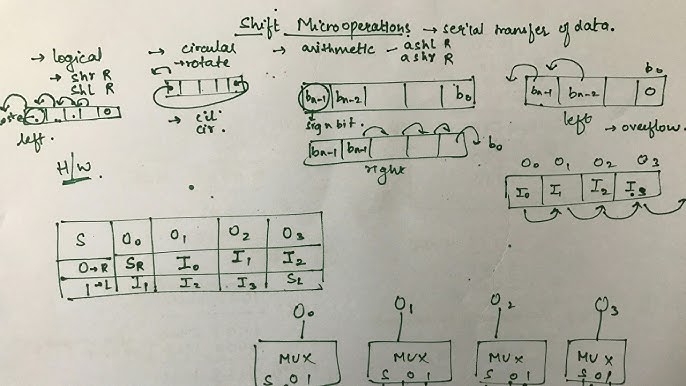 Shift Microoperations → serial transfer of data.
→ logical
→ shr R
shl R
→ circular
→ rotate
→ cil
cir.
→ arithmetic - ashl R
ashr R
0
left.
bn-1 bn-2 b0
sign bit.
bn-1 bn-1 b0
right
b0
bn-1 bn-2 0
left → overflow.
H/W
O0 O1 O2 O3
I0 I1 I2 I3
S O0 O1 O2 O3
0→R SR I0 I1 I2
1→L I1 I2 I3 SL
O0 O1 O2 O3
MUX MUX MUX MUX
S 0 1 S 0 1 S 0 1 S 0 1